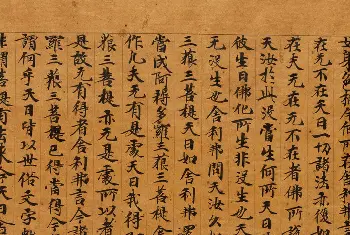 在无不在天曰一切諸法亦復如
在夫无在无不在者佛所說
天汝於此沒當生何所天曰
彼生曰佛化所生非沒生也天
无沒生也舍利弗問天汝久如
三藐三菩提天曰如舍利弗
當成阿耨多羅三藐三菩提舍
作凡夫无有是處天曰我得
藐三菩提亦无是處所以者
是故无有得者舍利弗言今諸
羅三藐三菩提已得當得
謂何乎天曰皆以世俗文字數
謂菩提有去來今天曰